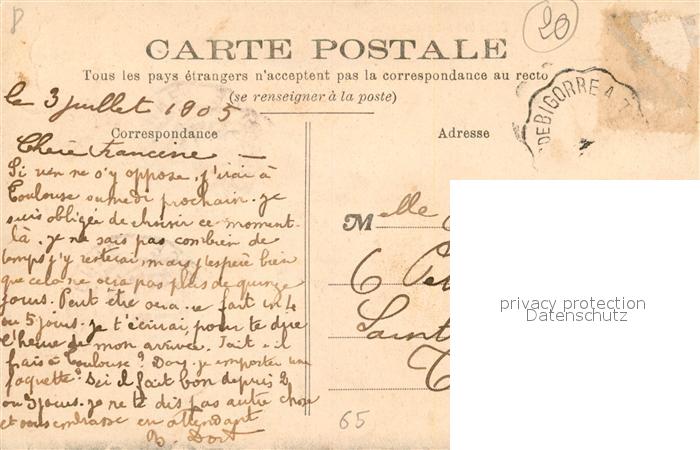 8
20
CARTE POSTALE
Tous les pays étrangers n'acceptent pas la correspondance au recto
(se renseigner à la poste)
le 3 juillet 1905
DE BIGORRE A T
Correspondance
Adresse
Chère Francine —
Si rien ne s'y oppose, j'irai à
Toulouse samedi prochain. je
suis obligée de choisir ce moment-
là. je ne sais pas combien de
temps j'y resterai mais j'espère bien
que cela ne sera pas plus de quinze
jours. Peut être sera-ce fait en 4
ou 5 jours. je t'écrirai pour te dire
l'heure de mon arrivée. Fait-il
frais à Toulouse? Dois-je emporter une
jaquette? Ici il fait bon depuis 2
ou 3 jours. je ne te dis pas autre chose
et vous embrasse en attendant
B. Dort
Melle
6
Saint
65
privacy protection
Datenschutz